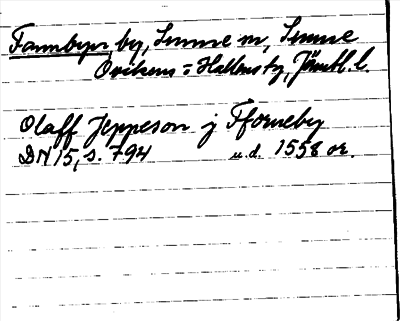 Fannbyn, by, Sunne sn, Sunne
Ovikens o Hallens tg, Jämtl. l.
Olaff Jeppeson j Fforneby
DN 15, s. 794 u.d. 1558 or.